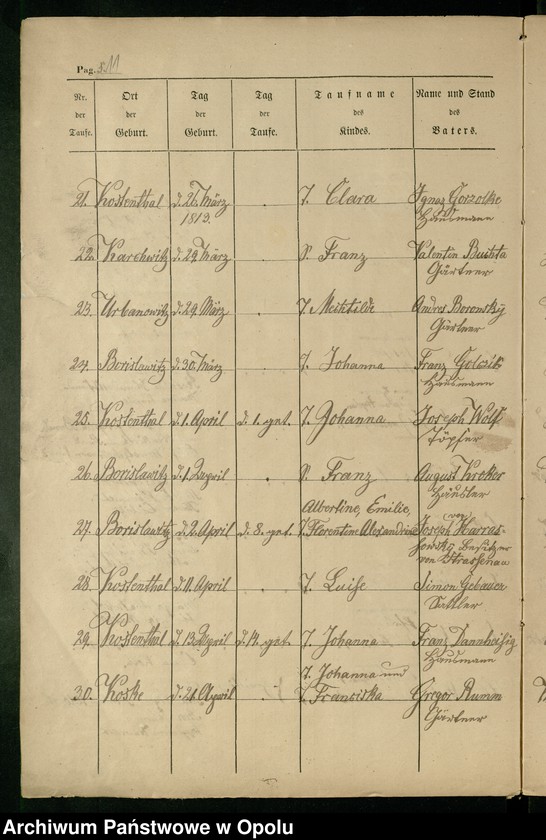 Pag. 11
Nr. der Taufe. Ort der Geburt. Tag der Geburt. Tag der Taufe. Taufname des Kindes. Name und Stand des Vaters.
21. Kostenthal d. 26. März T. Clara Ignaz Gorzolke
1813. Hausmann
22. Karchwitz d. 29. März S. Franz Valentin Buchta
Gärtner
23. Urbanowitz d. 29. März T. Mechtilde Andres Boronsky
Gärtner
24. Borislawitz d. 30. März T. Johanna Franz
Hausmann
25. Kostenthal d. 1. April d. 1. get. T. Johanna Joseph Wolf
Töpfer
26. Borislawitz d. 1. April S. Franz August Kroker
Häusler
Albertine, Emilie, von
27. Borislawitz d. 2. April d. 8. get. T. Florentine Alexandrine Joseph Harras-
howsky Besitzer
von
28. Kostenthal d. 11. April T. Luise Simon Gebauer
Sattler
29. Kostenthal d. 13. April d. 14. get. T. Johanna Franz Dannheisig
Hausmann
T. Johanna und
30. Koske d. 21. April T. Franciska Gregor Rumm
Gärtner
Archiwum Państwowe w Opolu